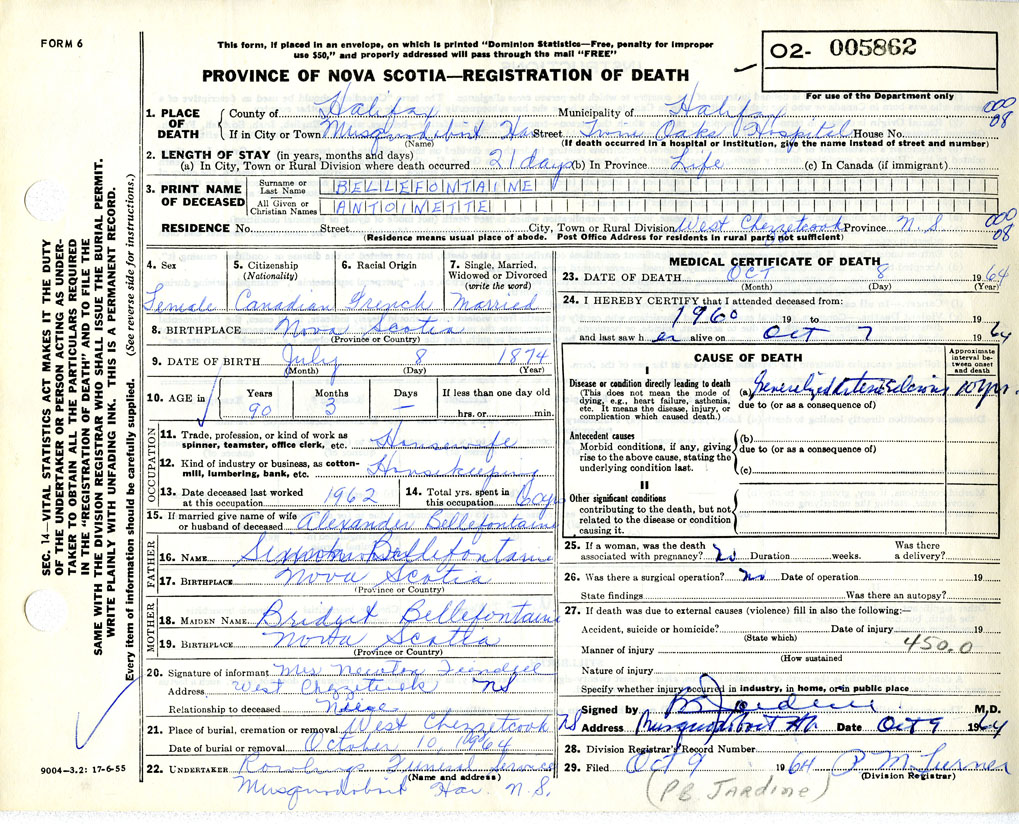 FORM 6
This form, if placed in an envelope, on which is printed "Dominion Statistics—Free, penalty for improper
use $50," and properly addressed will pass through the mail "FREE"
PROVINCE OF NOVA SCOTIA—REGISTRATION OF DEATH
O2- 005862
For use of the Department only
SEC. 14—VITAL STATISTICS ACT MAKES IT THE DUTY
OF THE UNDERTAKER OR PERSON ACTING AS UNDER-
TAKER TO OBTAIN ALL THE PARTICULARS REQUIRED
IN THE "REGISTRATION OF DEATH" AND TO FILE THE
SAME WITH THE DIVISION REGISTRAR WHO SHALL ISSUE THE BURIAL PERMIT.
WRITE PLAINLY WITH UNFADING INK. THIS IS A PERMANENT RECORD.
Every item of information should be carefully supplied. (See reverse side for instructions.)
1. PLACE OF DEATH County of Halifax Municipality of Halifax 000 08
If in City or Town Musquodoboit Har Street Twin Oaks Hospital House No.
(Name) (If death occurred in a hospital or institution, give the name instead of street and number)
2. LENGTH OF STAY (in years, months and days)
(a) In City, Town or Rural Division where death occurred 21 days (b) In Province Life (c) In Canada (if immigrant)
3. PRINT NAME OF DECEASED Surname or Last Name BELLEFONTAINE
All Given or Christian Names ANTOINETTE
RESIDENCE No. Street City, Town or Rural Division West Chezzetcook Province N.S 000 08
(Residence means usual place of abode. Post Office Address for residents in rural parts not sufficient)
4. Sex Female
5. Citizenship (Nationality) Canadian
6. Racial Origin French
7. Single, Married, Widowed or Divorced (write the word) Married
8. BIRTHPLACE Nova Scotia
(Province or Country)
9. DATE OF BIRTH July 8 1874
(Month) (Day) (Year)
10. AGE in Years 90 Months 3 Days — If less than one day old hrs. or min.
OCCUPATION
11. Trade, profession, or kind of work as spinner, teamster, office clerk, etc. Housewife
12. Kind of industry or business, as cotton-mill, lumbering, bank, etc. Housekeeping
13. Date deceased last worked at this occupation 1962
14. Total yrs. spent in this occupation 60 yrs
15. If married give name of wife or husband of deceased Alexander Bellefontaine
FATHER
16. NAME Bellefontaine
17. BIRTHPLACE Nova Scotia
(Province or Country)
MOTHER
18. MAIDEN NAME Bridget Bellefontaine
19. BIRTHPLACE Nova Scotia
(Province or Country)
20. Signature of informant Mrs Newton
Address West NS
Relationship to deceased Niece
21. Place of burial, cremation or removal West Chezzetcook NS
Date of burial or removal October 10, 1964
22. UNDERTAKER Rowlings Funeral Service
(Name and address)
Musquodoboit Har. N.S.
9004—3.2: 17-6-55
MEDICAL CERTIFICATE OF DEATH
23. DATE OF DEATH OCT 8 1964
(Month) (Day) (Year)
24. I HEREBY CERTIFY that I attended deceased from:
1960 19 to 19
and last saw h er alive on Oct 7 1964
CAUSE OF DEATH
Approximate interval between onset and death
I
Disease or condition directly leading to death
(This does not mean the mode of dying, e.g., heart failure, asthenia, etc. It means the disease, injury, or complication which caused death.)
(a) Generalized Arteriosclerosis 10 yrs.
due to (or as a consequence of)
Antecedent causes
Morbid conditions, if any, giving rise to the above cause, stating the underlying condition last.
(b)
due to (or as a consequence of)
(c)
II
Other significant conditions
contributing to the death, but not related to the disease or condition causing it.
25. If a woman, was the death associated with pregnancy? No Duration weeks. Was there a delivery?
26. Was there a surgical operation? No Date of operation 19
State findings Was there an autopsy?
27. If death was due to external causes (violence) fill in also the following:—
Accident, suicide or homicide? Date of injury 19
(State which)
Manner of injury 450.0
(How sustained
Nature of injury
Specify whether injury occurred in industry, in home, or in public place
Signed by M.D.
Address Musquodoboit Hb. Date Oct 9 1964
28. Division Registrar's Record Number
29. Filed Oct 9 1964 P M Turner
(Division Registrar)
(PB JARDINE)